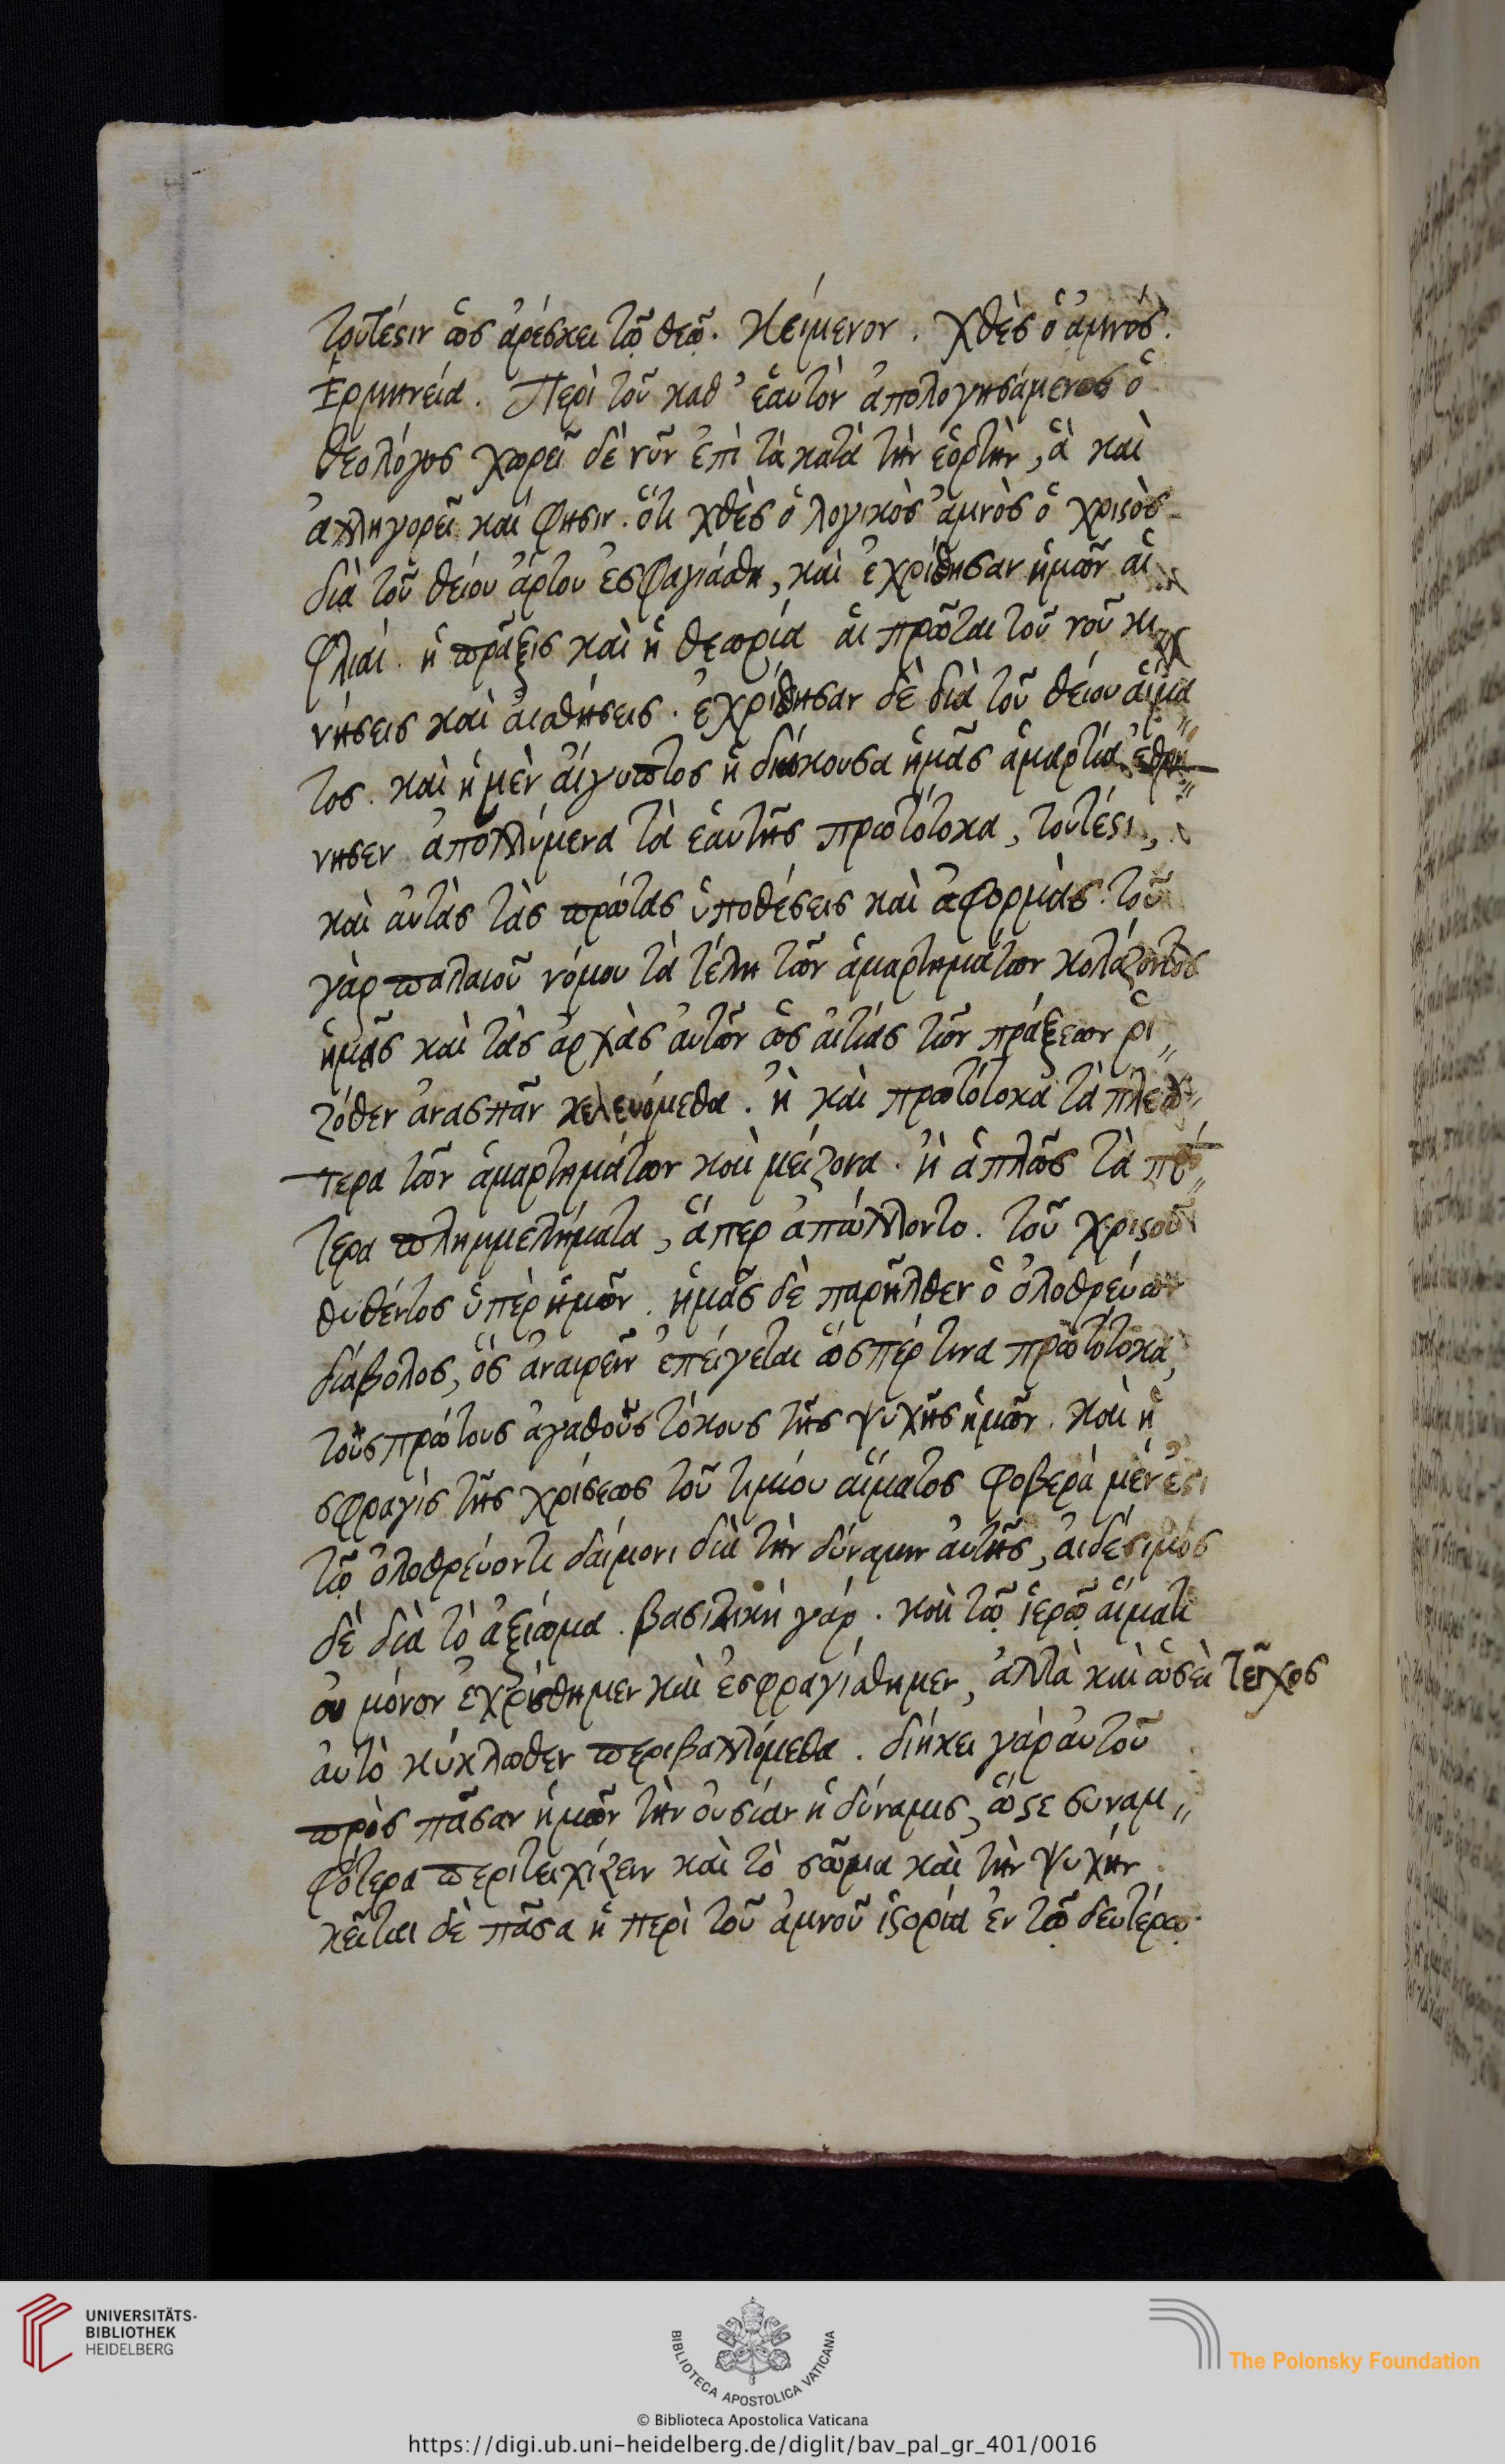 τουτέστιν ὡς ἀρέσκει τῷ θεῷ. Κείμενον. Χθὲς ὁ ἀμνός.
Ἑρμηνεία. Περὶ τοῦ καθ' ἑαυτὸν ἀπολογησάμενος ὁ
θεολόγος χωρεῖ δὲ νῦν ἐπὶ τὰ κατὰ τὴν ἑορτὴν, ἃ καὶ
ἀλληγορεῖ καί φησιν. ὅτι χθὲς ὁ λογικὸς ἀμνὸς ὁ χριστὸς
διὰ τοῦ θείου ἄρτου ἐσφαγιάσθη, καὶ ἐχρίσθησαν ἡμῶν αἱ
φλιαί. ἡ πρᾶξις καὶ ἡ θεωρία αἱ πρῶται τοῦ νοῦ κι
νήσεις καὶ αἰσθήσεις. ἐχρίσθησαν δὲ διὰ τοῦ θείου αἵμα
τος. καὶ ἡ μὲν αἴγυπτος ἡ διώκουσα ἡμᾶς ἁμαρτία ἐθρή
νησεν ἀπολλύμενα τὰ ἑαυτῆς πρωτότοκα, τουτέστι,
καὶ αὐτὰς τὰς πρώτας ὑποθέσεις καὶ ἀφορμὰς. τοῦ
γὰρ παλαιοῦ νόμου τὰ τέλη τῶν ἁμαρτημάτων κολάζοντος
ἡμεῖς καὶ τὰς ἀρχὰς αὐτῶν ὡς αἰτίας τῶν πράξεων ῥι〃
ζόθεν ἀνασπᾶν κελευόμεθα. ἢ καὶ πρωτότοκα τὰ
τερα τῶν ἁμαρτημάτων καὶ μείζονα. ἢ ἁπλῶς τὰ
τερα πλημμελήματα, ἅπερ ἀπώλλοντο. τοῦ χριστοῦ
θυθέντος ὑπὲρ ἡμῶν. ἡμᾶς δὲ παρῆλθεν ὁ ὀλοθρεύων
διάβολος, ὃς ἀναιρεῖν ἐπείγεται ὥσπέρ τινα πρωτότοκα,
τοὺς πρώτους ἀγαθοὺς τόκους τῆς ψυχῆς ἡμῶν. καὶ ἡ
σφραγὶς τῆς χρίσεως τοῦ τιμίου αἵματος φοβερὰ μέν ἐστι
τῷ ὀλοθρεύοντι δαίμονι διὰ τὴν δύναμιν αὐτῆς, αἰδέσιμος
δὲ διὰ τὸ ἀξίωμα. βασιλικὴ γάρ. καὶ τῷ ἱερῷ αἵματι
οὐ μόνον ἐχρίσθημεν καὶ ἐσφραγίσθημεν, ἀλλὰ καὶ ὡσεὶ τεῖχος
αὐτὸ κύκλωθεν περιβαλλόμεθα. διήκει γὰρ αὐτοῦ
πρὸς πᾶσαν ἡμῶν τὴν οὐσίαν ἡ δύναμις, ὥστε συναμ〃
φότερα περιτειχίζειν καὶ τὸ σῶμα καὶ τὴν ψυχήν.
κεῖται δὲ πᾶσα ἡ περὶ τοῦ ἀμνοῦ ἱστορία ἐν τῷ δευτέρῳ
UNIVERSITÄTS-
BIBLIOTHEK
HEIDELBERG
BIBLIOTECA APOSTOLICA VATICANA
The Polonsky Foundation
© Biblioteca Apostolica Vaticana
https://digi.ub.uni-heidelberg.de/diglit/bav_pal_gr_401/0016